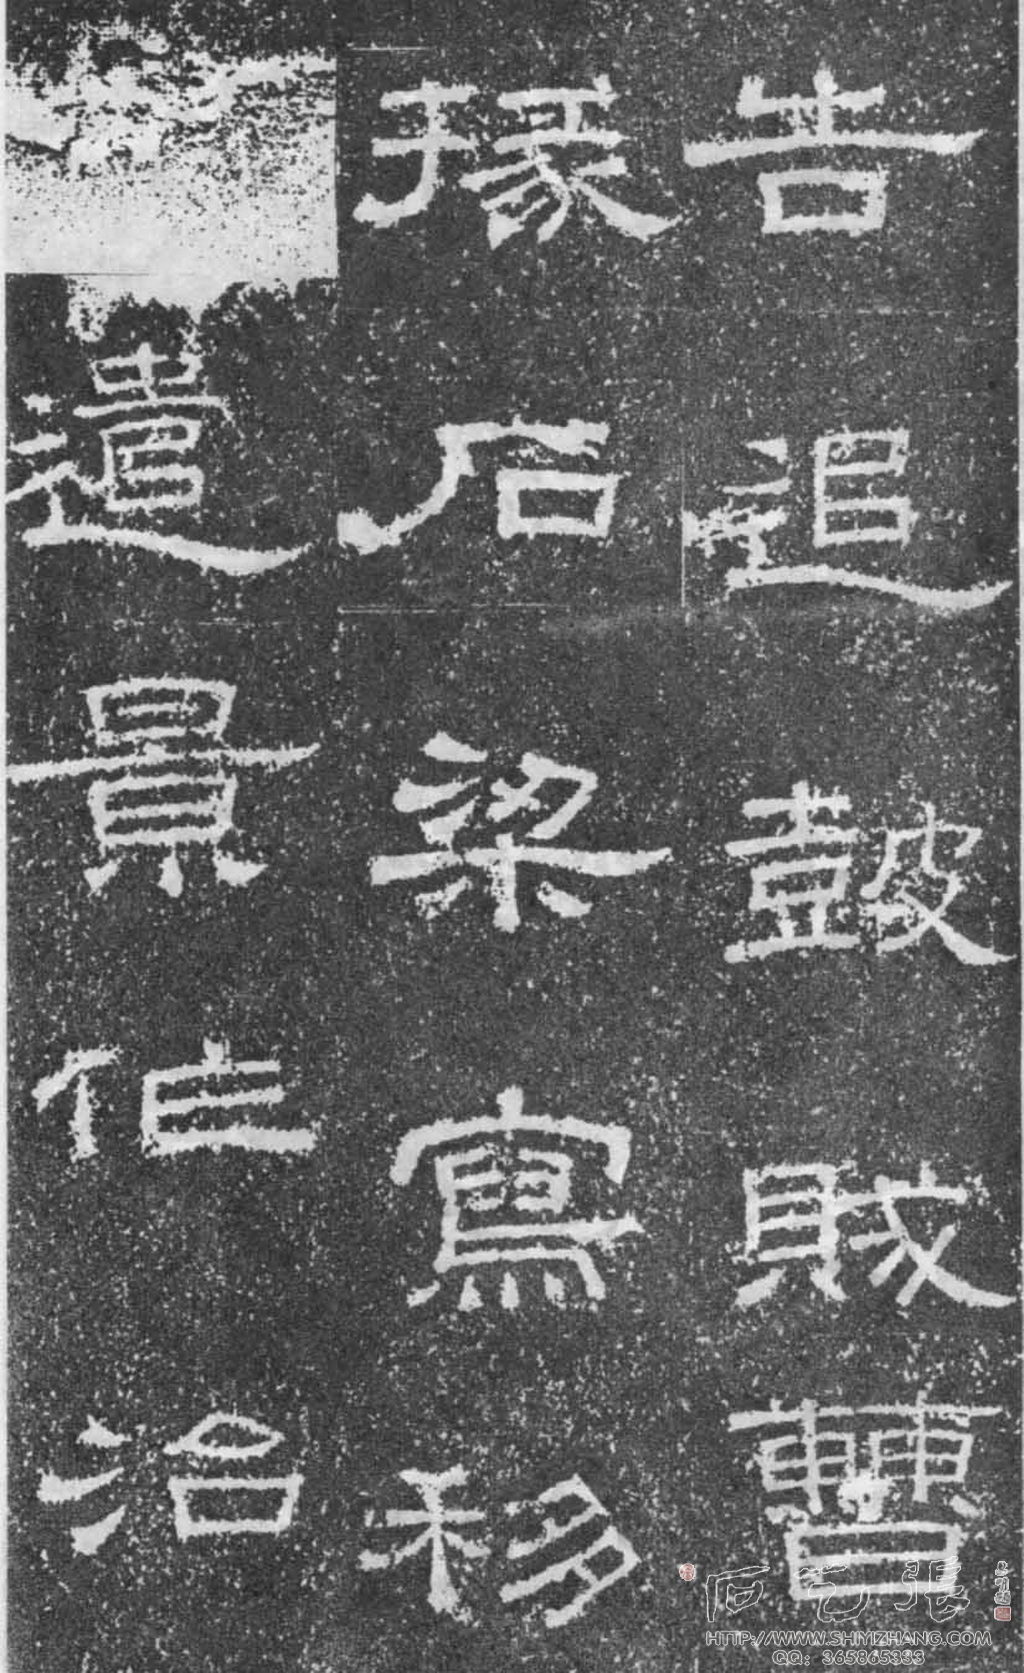 告追鼓賊曹
掾石梁寫移
遣景作治
石艺張
HTTP://WWW.SHIYIZHANG.COM
QQ: 365865333